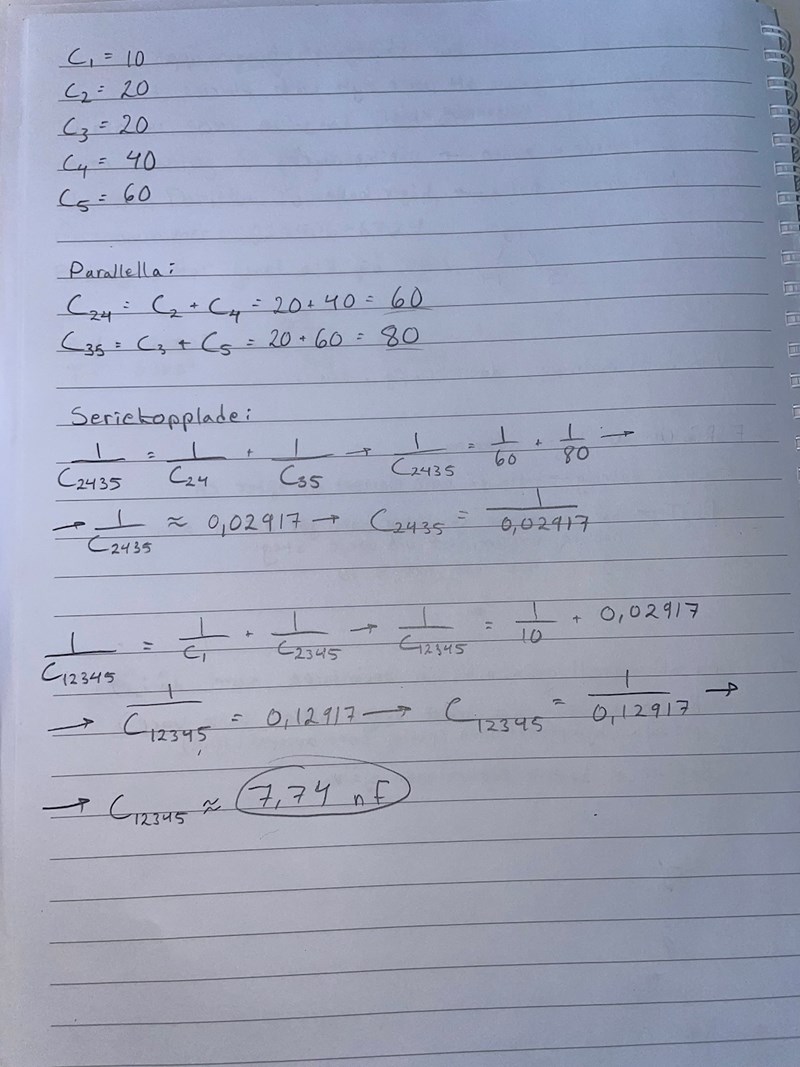 C₁ = 10
C₂ = 20
C₃ = 20
C₄ = 40
C₅ = 60
Parallella:
C₂₄ = C₂ + C₄ = 20 + 40 = 60
C₃₅ = C₃ + C₅ = 20 + 60 = 80
Seriekopplade:
1/C₂₄₃₅ = 1/C₂₄ + 1/C₃₅ → 1/C₂₄₃₅ = 1/60 + 1/80 →
→ 1/C₂₄₃₅ ≈ 0,02917 → C₂₄₃₅ = 1/0,02917
1/C₁₂₃₄₅ = 1/C₁ + 1/C₂₃₄₅ → 1/C₁₂₃₄₅ = 1/10 + 0,02917
→ 1/C₁₂₃₄₅ = 0,12917 → C₁₂₃₄₅ = 1/0,12917 →
→ C₁₂₃₄₅ ≈ 7,74 nF